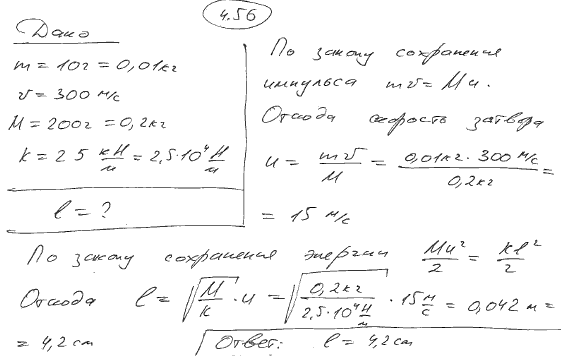 4.56
Дано
m = 10г = 0,01кг
v = 300 м/с
M = 200г = 0,2кг
k = 25 кН/м = 2,5·10⁴ Н/м
l = ?
По закону сохранения
импульса mv = Mu.
Отсюда скорость затвора
u = mv/M = 0,01кг · 300 м/с / 0,2кг =
= 15 м/с
По закону сохранения энергии Mu²/2 = kl²/2
Отсюда l = √(M/k) · u = √(0,2кг / 2,5·10⁴ Н/м) · 15 м/с = 0,042 м =
= 4,2 см
Ответ: l = 4,2 см